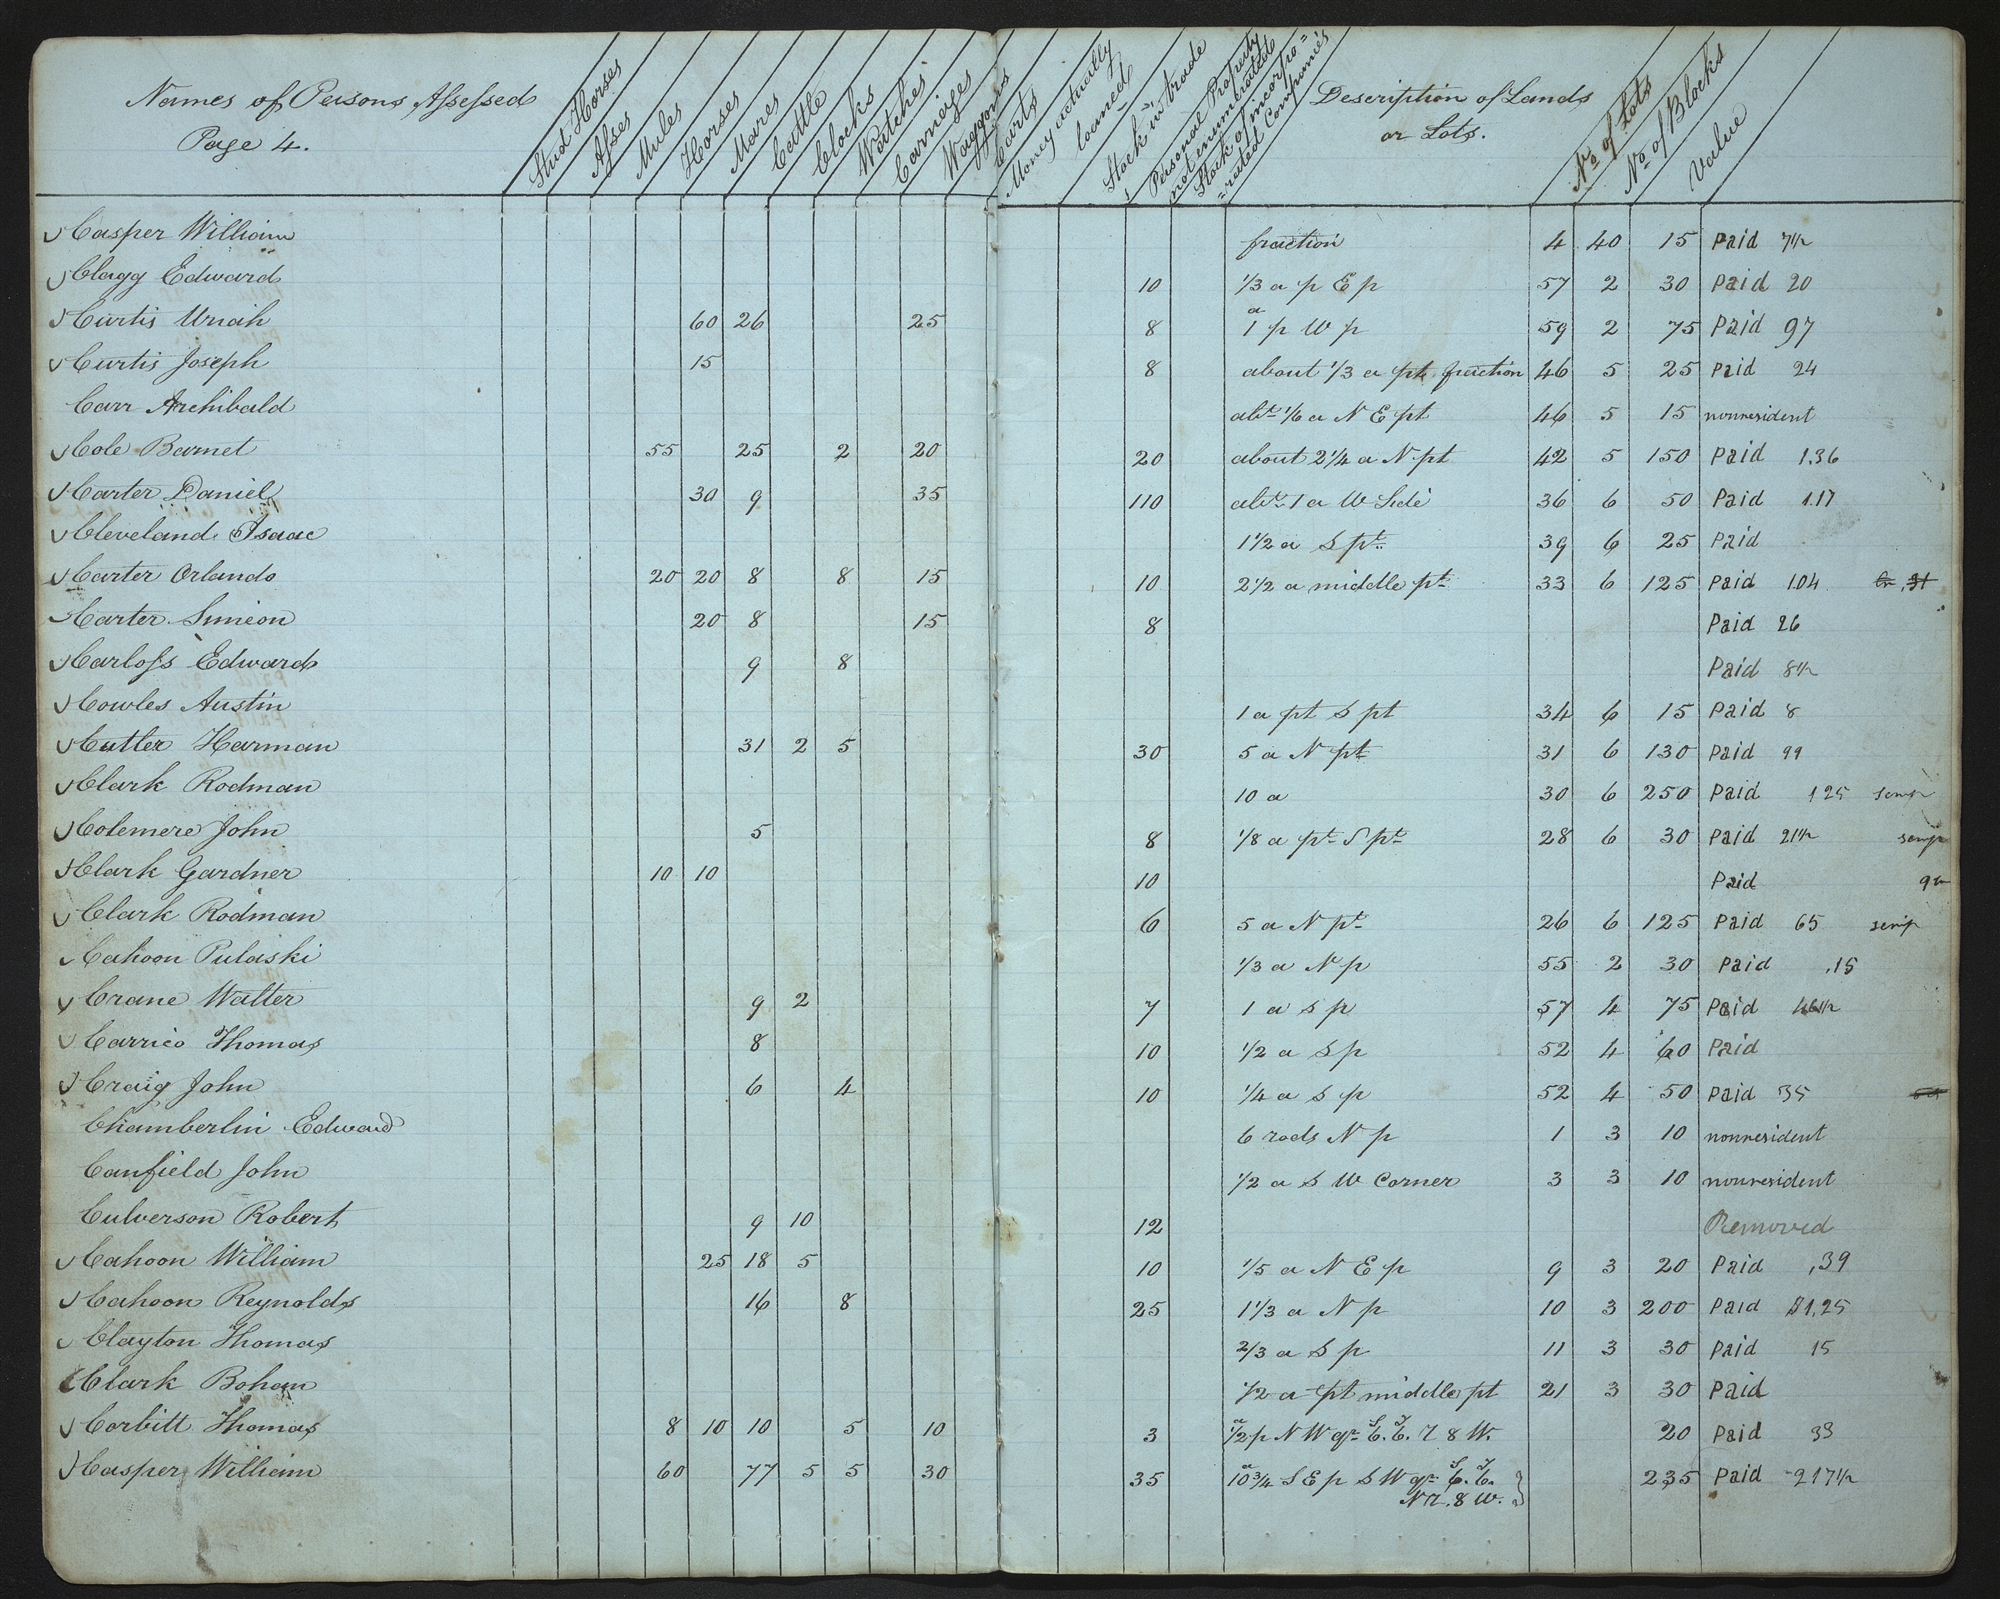 Names of Persons Assessed
Page 4.
Stud Horses
Asses
Mules
Horses
Mares
Cattle
Clocks
Watches
Carriages
Waggons
Carts
Money actually loaned
Stock in trade
Personal Property not enumerated
Stock of incorporated Companies
Description of Lands
or Lots.
No of Lots
No of Blocks
Value
Casper William fraction 4 40 15 Paid 7 1/2
Clagg Edward 10 1/3 a p E p 57 2 30 Paid 20
Curtis Uriah 60 26 25 8 1 a p W p 59 2 75 Paid 97
Curtis Joseph 15 8 about 1/3 a pt fraction 46 5 25 Paid 24
Carr Archibald abt 1/6 a N E pt 46 5 15 nonresident
Cole Barnet 55 25 2 20 20 about 2 1/4 a N pt 42 5 150 Paid 1.36
Carter Daniel 30 9 35 110 abt 1 a W Side 36 6 50 Paid 1.17
Cleveland Isaac 1 1/2 a S pt 39 6 25 Paid
Carter Orlando 20 20 8 8 15 10 2 1/2 a middle pt 33 6 125 Paid 1.04
Carter Simeon 20 8 15 8 Paid 26
Carloss Edward 9 8 Paid 8 1/2
Cowles Austin 1 a pt S pt 34 6 15 Paid 8
Cutler Harman 31 2 5 30 5 a N pt 31 6 130 Paid 99
Clark Rodman 10 a 30 6 250 Paid 1 25 scrip
Colemere John 5 8 1/8 a pt S pt 28 6 30 Paid 21 1/2 scrip
Clark Gardner 10 10 10 Paid
Clark Rodman 6 5 a N pt 26 6 125 Paid 65 scrip
Cahoon Pulaski 1/3 a N p 55 2 30 Paid .15
Crane Walter 9 2 7 1 a S p 57 4 75 Paid 46 1/2
Carrico Thomas 8 10 1/2 a S p 52 4 60 Paid
Craig John 6 4 10 1/4 a S p 52 4 50 Paid 35
Chamberlin Edward 6 rods N p 1 3 10 nonresident
Canfield John 1/2 a S W Corner 3 3 10 nonresident
Culverson Robert 9 10 12 Removed
Cahoon William 25 18 5 10 1/5 a N E p 9 3 20 Paid ,39
Cahoon Reynolds 16 8 25 1 1/3 a N p 10 3 200 Paid $1,25
Clayton Thomas 2/3 a S p 11 3 30 Paid 15
Clark Boham 1/2 a pt middle pt 21 3 30 Paid
Corbitt Thomas 8 10 10 5 10 3 1/2 a p N W qr 20 Paid 33
Casper William 60 77 5 5 30 35 10 3/4 a S E p S W qr 235 Paid 217 1/2
N 7. 8 W.